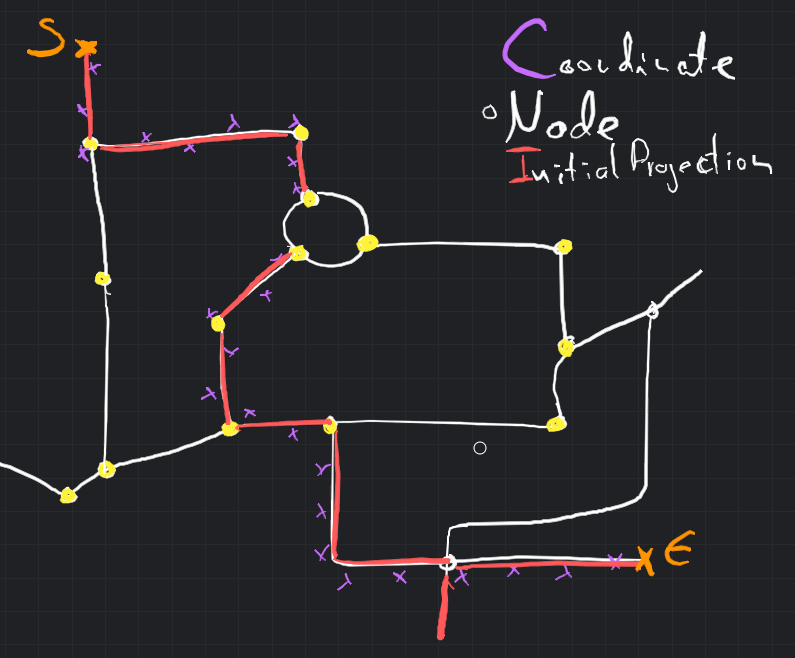 S
Coordinate
Node
Initial Projection
E